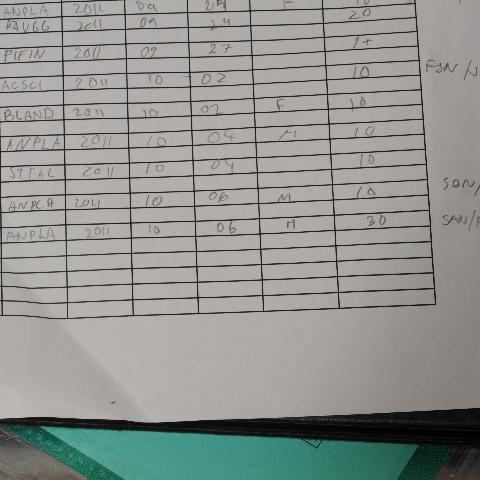 ANPLA 2011 09 24 F 10
2011 09 24 20
PIFIN 2011 09 27
ACSCI 2011 10 02 10 FSN/
BLAND 2011 10 02 F 10
ANPLA 2011 10 04 M 10
STFAL 2011 10 04 10
ANPLA 2011 10 06 M 10 SAN/
ANPLA 2011 10 06 M 30 SAN/